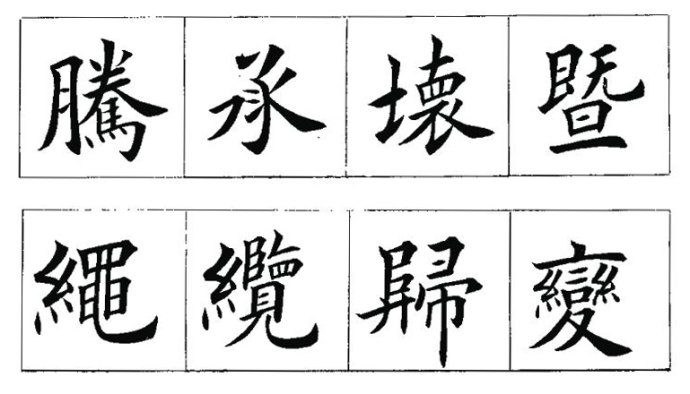 騰承壞暨
繩纜歸變